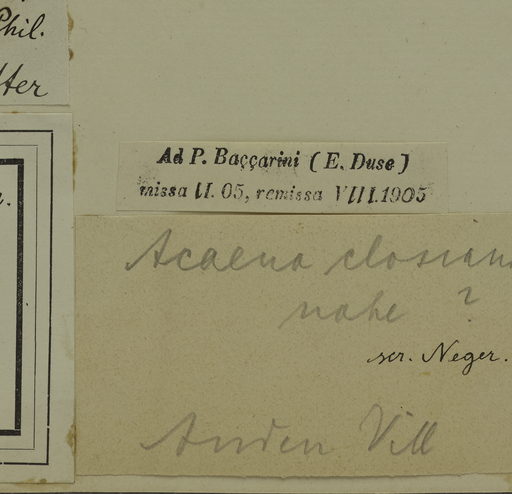 Phil.
Ad P. Baççarini ( E. Duse )
missa II. 05, remissa VIII.1905
Acaena closiana
nahe ?
scr. Neger.
Anden Vill